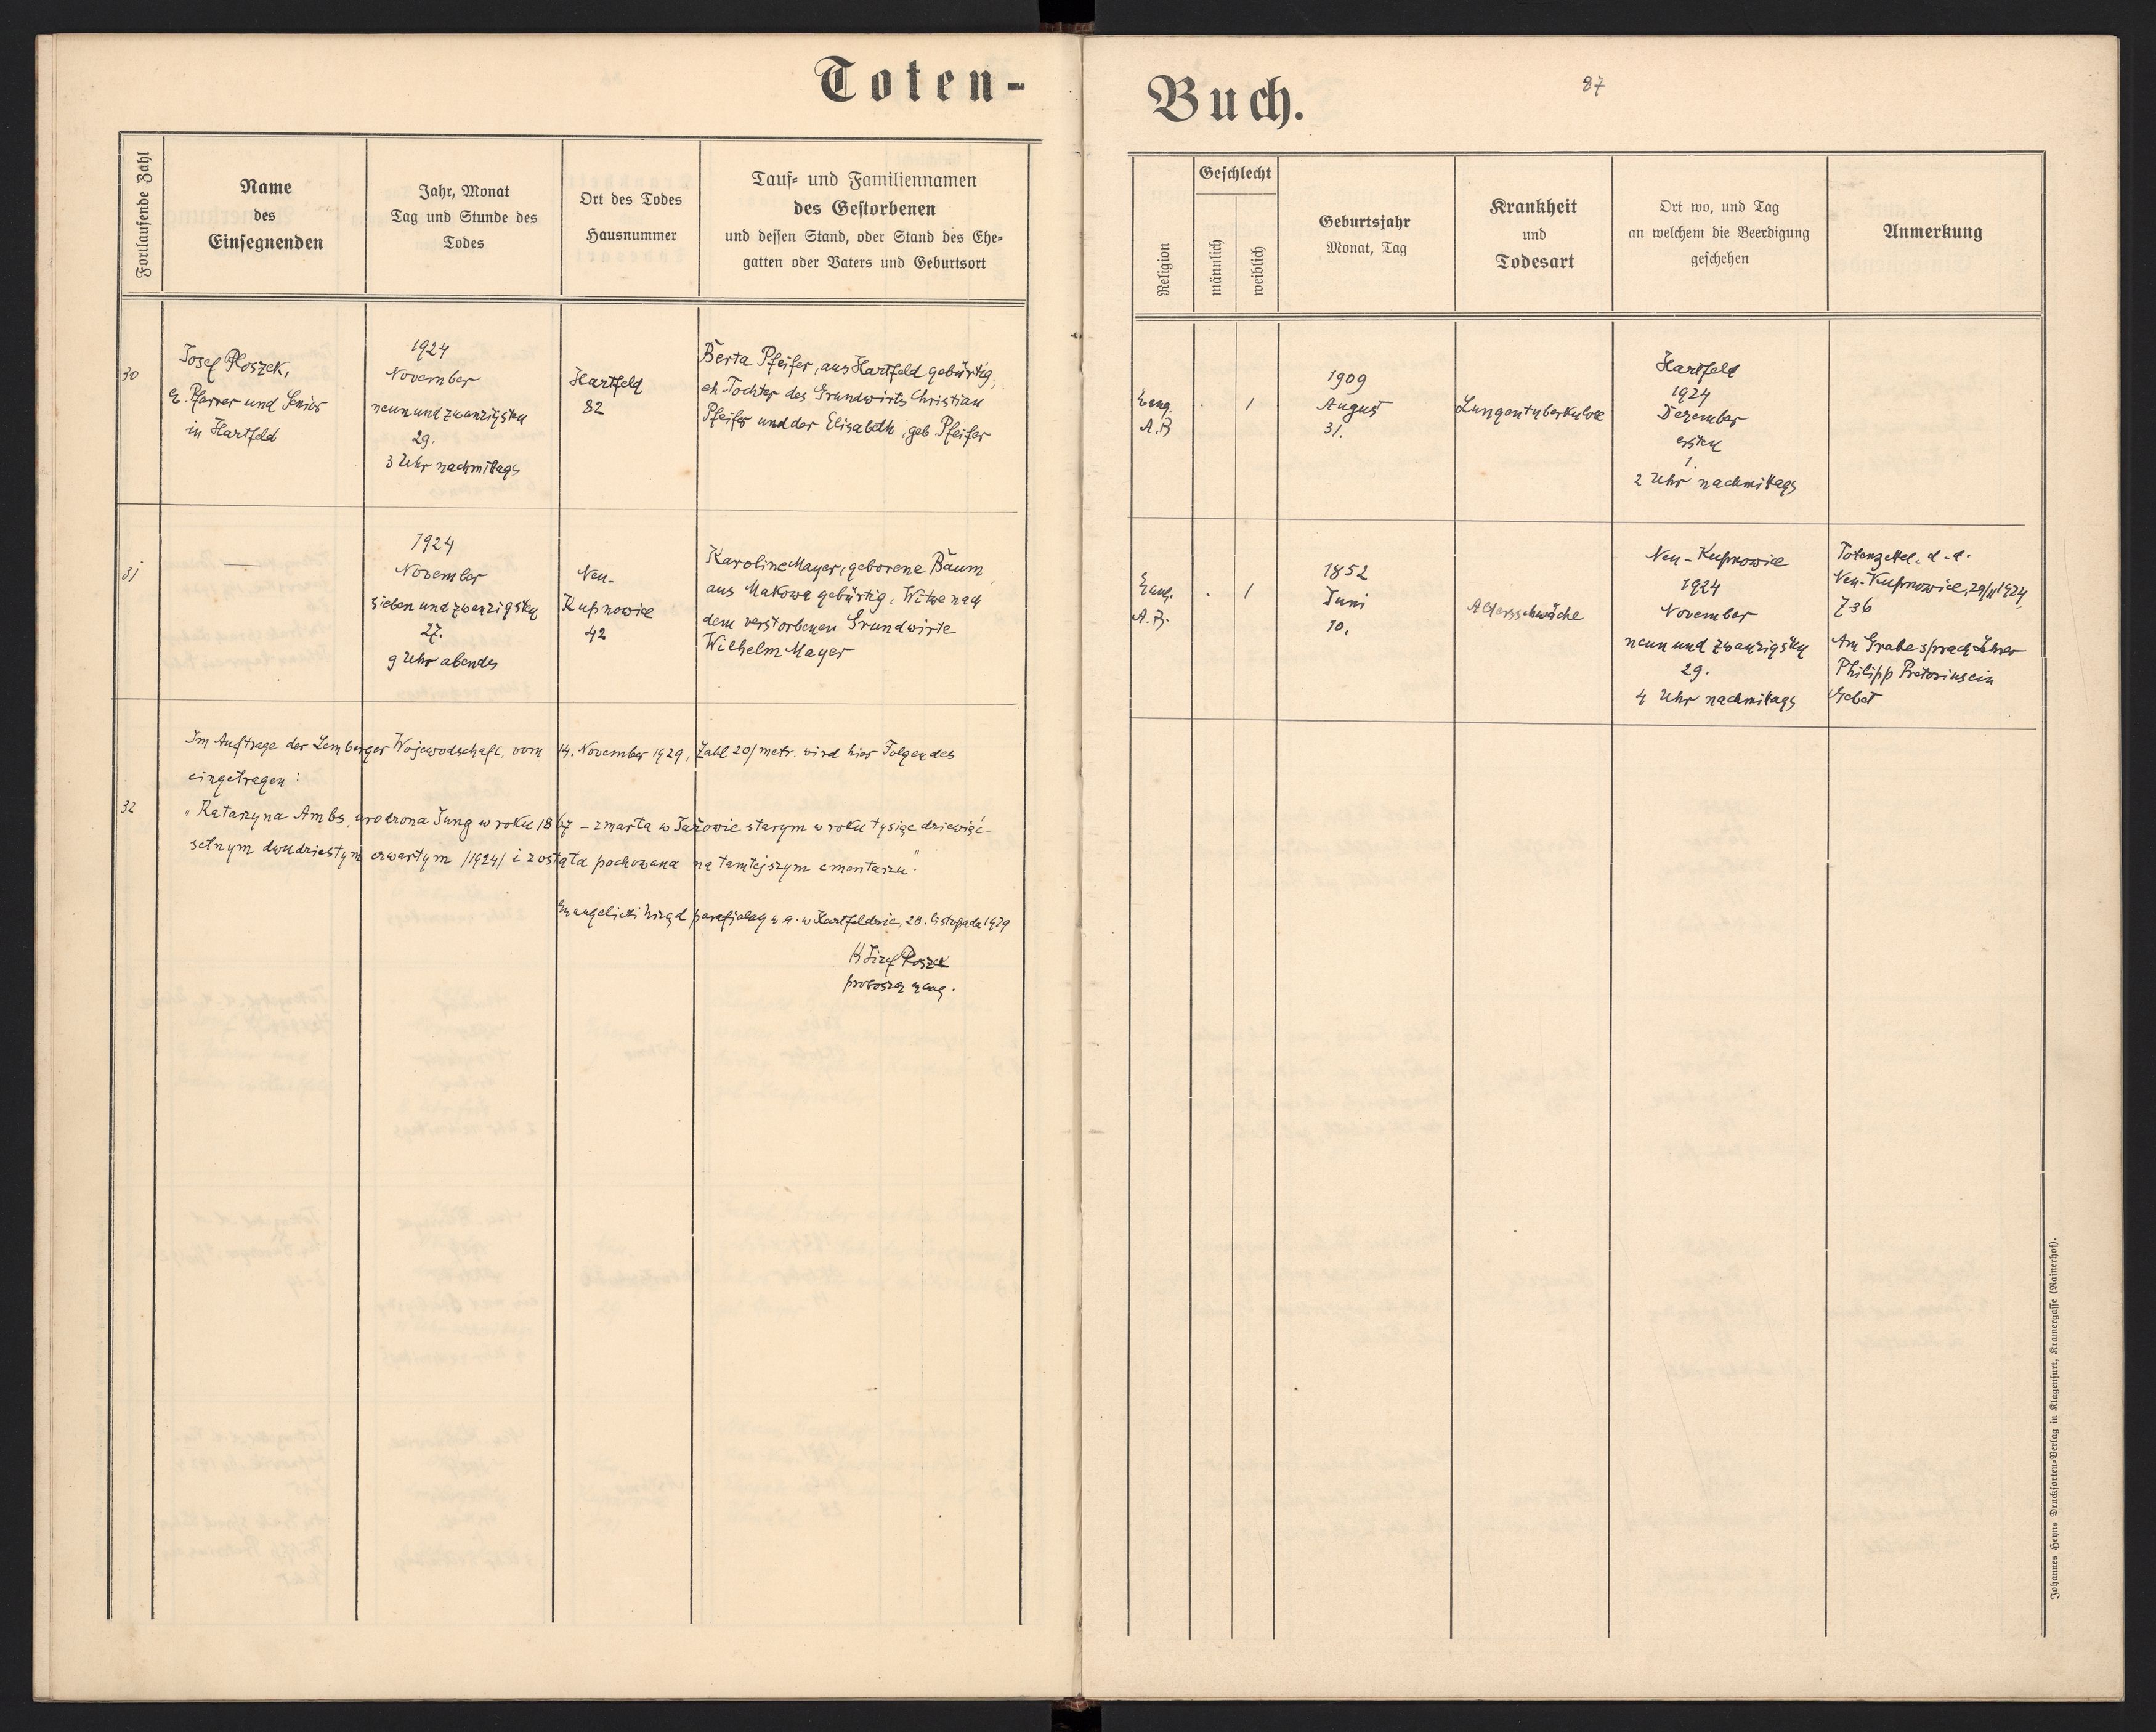 Toten-
Buch.
87
Fortlaufende Zahl
Name
des
Einsegnenden
Jahr, Monat
Tag und Stunde des
Todes
Ort des Todes
Hausnummer
Tauf- und Familiennamen
des Gestorbenen
und dessen Stand, oder Stand des Ehe-
gatten oder Vaters und Geburtsort
Religion
Geschlecht
männlich
weiblich
Geburtsjahr
Monat, Tag
Krankheit
und
Todesart
Ort wo, und Tag
an welchem die Beerdigung
geschehen
Anmerkung
30
Josef Ploszek,
e. Pfarrer und Senior
in Hartfeld
1924
November
neun und zwanzigsten
29.
3 Uhr nachmittags
Hartfeld
82
Berta Pfeifer, aus Hartfeld gebürtig,
eh. Tochter des Grundwirts Christian
Pfeifer und der Elisabeth, geb Pfeifer
Evang.
A.B
.
1
1909
August
31.
Lungentuberkulose
Hartfeld
1924
Dezember
ersten
1.
2 Uhr nachmittags
31
—
1924
November
sieben und zwanzigsten
27.
9 Uhr abends
Neu-
Kupnowice
42
Karoline Mayer, geborene Baum
aus Makowa gebürtig, Witwe nach
dem verstorbenen Grundwirte
Wilhelm Mayer
Evang.
A.B.
.
1
1852
Juni
10.
Altersschwäche
Neu-Kupnowice
1924
November
neun und zwanzigsten
29.
4 Uhr nachmittags
Totenzettel. d. d.
Neu-Kupnowice, 29/11 1924,
Z 36
Am Grabe sprach Lehrer
Philipp Pretorius ein
Gebet
Im Auftrage der Lemberger Wojewodschaft, vom 14. November 1929, Zahl 20/metr. wird hier Folgendes
eingetragen:
32
"Katarzyna Ambs, urodzona Jung w roku 1867 – zmarła w Jażowie starym w roku tysiąc dziewięć-
setnym dwudziestym czwartym /1924/ i została pochowana na tamtejszym cmentarzu."
Ewangelicki Urząd parafjalny w. a. w Hartfeldzie, 20. listopada 1929
Józef Ploszek
proboszcz ewang.
Johannes Heyns Drucksorten-Verlag in Klagenfurt, Kramergasse (Rainerhof).